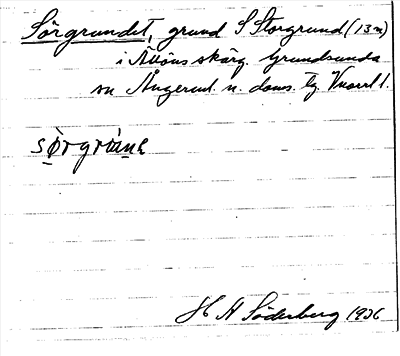 Sörgrundet, grund S Storgrund (13 m)
i Alnöns skärg. Grundsunda
sn Ångerml. n. doms. lg. Vnorrl l.
sörgrùnɛ
H A Söderberg 1936